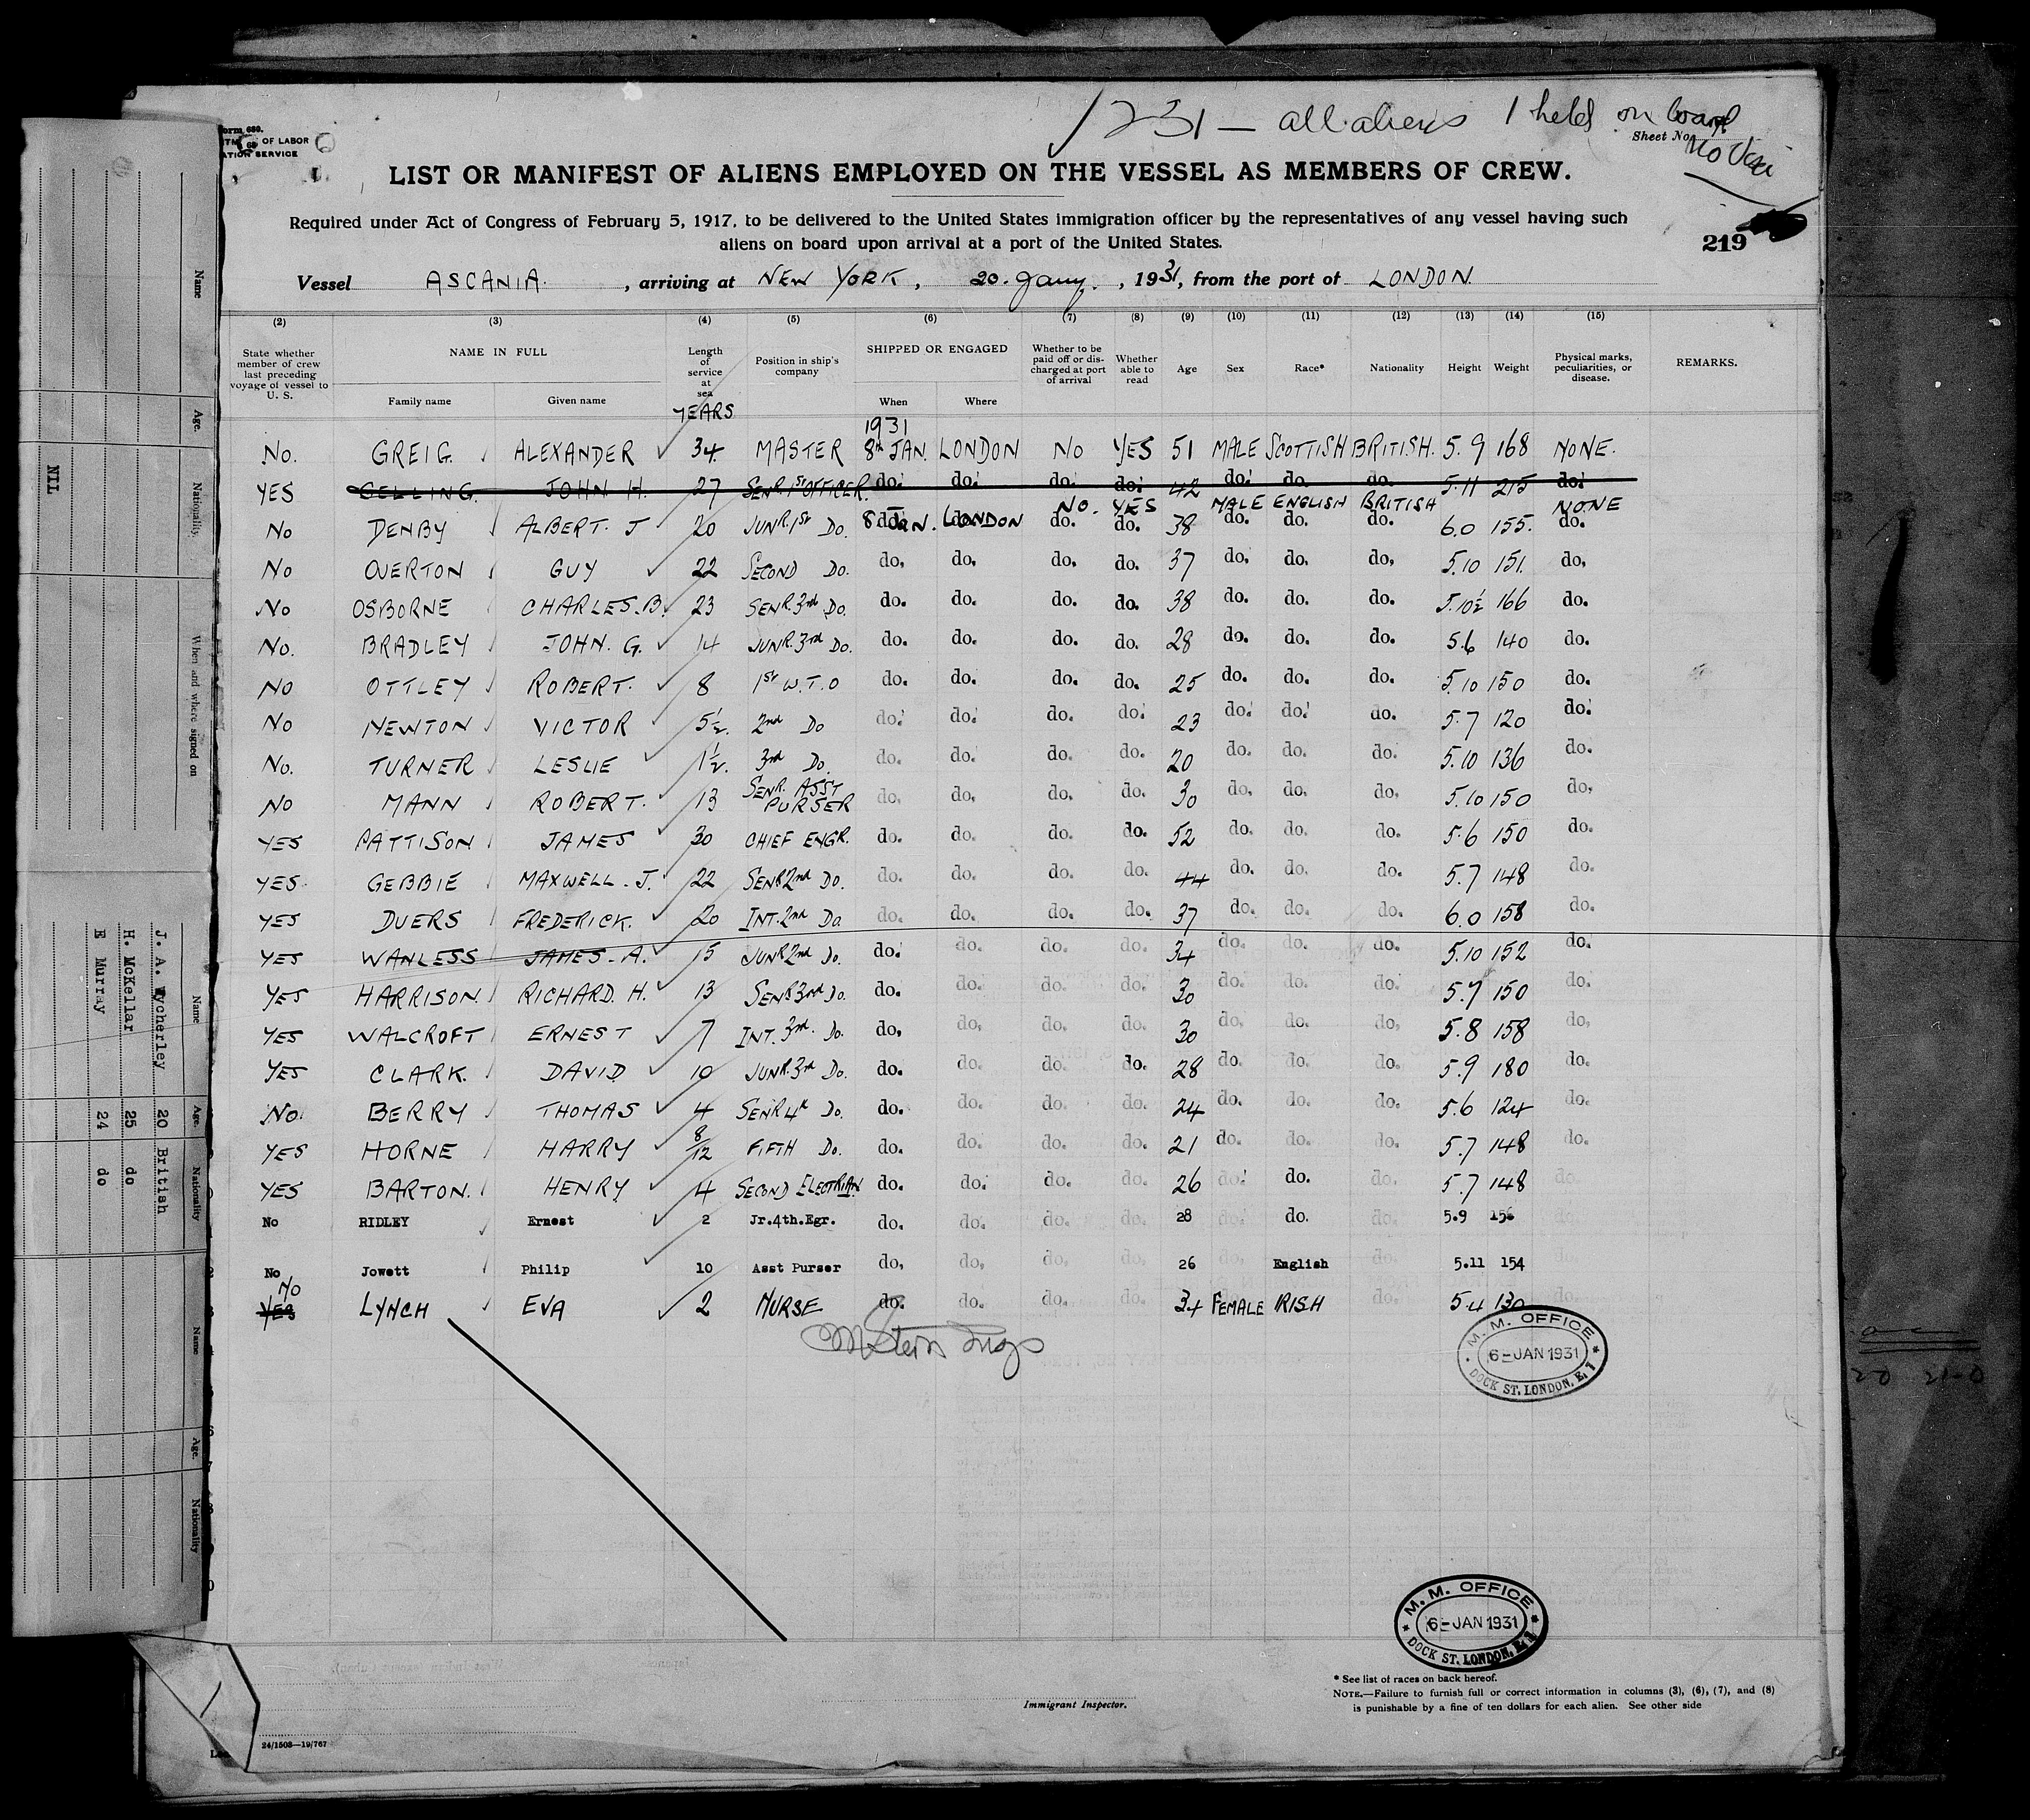 1231 — all aliens 1 held on board
Sheet No.
No Visa
Form 680.
OF LABOR
SERVICE
LIST OR MANIFEST OF ALIENS EMPLOYED ON THE VESSEL AS MEMBERS OF CREW.
Required under Act of Congress of February 5, 1917, to be delivered to the United States immigration officer by the representatives of any vessel having such
aliens on board upon arrival at a port of the United States.
219
Vessel ASCANIA. , arriving at NEW YORK, 20. Jany. , 1931, from the port of LONDON.
(2) (3) (4) (5) (6) (7) (8) (9) (10) (11) (12) (13) (14) (15)
State whether member of crew last preceding voyage of vessel to U. S. NAME IN FULL Family name Given name Length of service at sea Position in ship's company SHIPPED OR ENGAGED When Where Whether to be paid off or discharged at port of arrival Whether able to read Age Sex Race* Nationality Height Weight Physical marks, peculiarities, or disease. REMARKS.
YEARS 1931
No. GREIG. ALEXANDER 34 MASTER 8th JAN. LONDON NO YES 51 MALE SCOTTISH BRITISH. 5.9 168 NONE.
YES GELLING. JOHN H. 27 SENR. 1ST OFFICER. do. do. do. do. 42 do. do. do. 5.11 215 do.
NO. YES MALE ENGLISH BRITISH NONE
No DENBY ALBERT. J 20 JUNR. 1st Do. 8 JAN. LONDON do. do. 38 do. do. do. 6.0 155. do.
No OVERTON GUY 22 SECOND Do. do. do. do. do. 37 do. do. do. 5.10 151. do.
No OSBORNE CHARLES. B. 23 SENR. 3rd Do. do. do. do. do. 38 do. do. do. 5.10½ 166 do.
No. BRADLEY JOHN. G. 14 JUNR. 3rd Do. do. do. do. do. 28 do. do. do. 5.6 140 do.
No OTTLEY ROBERT. 8 1st W.T.O do. do. do. do. 25 do. do. do. 5.10 150 do.
No NEWTON VICTOR 5½. 2nd Do do. do. do. do. 23 do. do. do. 5.7 120 do.
No. TURNER LESLIE 1½. 3rd Do. do. do. do. do. 20 do. do. do. 5.10 136 do.
No MANN ROBERT. 13 SENR. ASST PURSER do. do. do. do. 30 do. do. do. 5.10 150 do.
YES PATTISON JAMES 30 CHIEF ENGR. do. do. do. do. 52 do. do. do. 5.6 150 do.
YES. GEBBIE MAXWELL. J. 22 SENR 2nd Do. do. do. do. do. 44 do. do. do. 5.7 148 do.
YES DUERS FREDERICK. 20 INT. 2nd Do. do. do. do. do. 37 do. do. do. 6.0 158 do.
YES WANLESS JAMES. A. 15 JUNR 2nd Do. do. do. do. do. 34 do. do. do. 5.10 152 do.
YES HARRISON RICHARD. H. 13 SENR 3rd Do. do. do. do. do. 30 do. do. do. 5.7 150 do.
YES WALCROFT ERNEST 7 INT. 3rd. Do. do. do. do. do. 30 do. do. do. 5.8 158 do.
YES CLARK. DAVID 10 JUNR. 3rd Do. do. do. do. do. 28 do. do. do. 5.9 180 do.
No. BERRY THOMAS 4 SENR 4th Do. do. do. do. do. 24 do. do. do. 5.6 124 do.
YES HORNE HARRY 8/12 FIFTH Do. do. do. do. do. 21 do. do. do. 5.7 148 do.
YES BARTON. HENRY 4 SECOND ELECTRIAN do. do. do. do. 26 do. do. do. 5.7 148 do.
No RIDLEY Ernest 2 Jr.4th.Egr. do. do. do. do. 28 do. do. do. 5.9 156
No Jowett Philip 10 Asst Purser do. do. do. do. 26 do. English do. 5.11 154 do.
No
YES LYNCH EVA 2 NURSE do. do. do. do. 34 FEMALE IRISH do. 5.4 130
M. M. OFFICE
6-JAN 1931
DOCK ST. LONDON, E. 1
M. M. OFFICE
6-JAN 1931
DOCK ST. LONDON, E. 1
* See list of races on back hereof.
NOTE.—Failure to furnish full or correct information in columns (3), (6), (7), and (8)
is punishable by a fine of ten dollars for each alien. See other side
Immigrant Inspector.
24/1503—19/767
Name Age. Nationality. When and where signed on
NIL
Name Age. Nationality
J. A. Wycherley 20 British
H. McKellar 25 do
E Murray 24 do
Name Age. Nationality